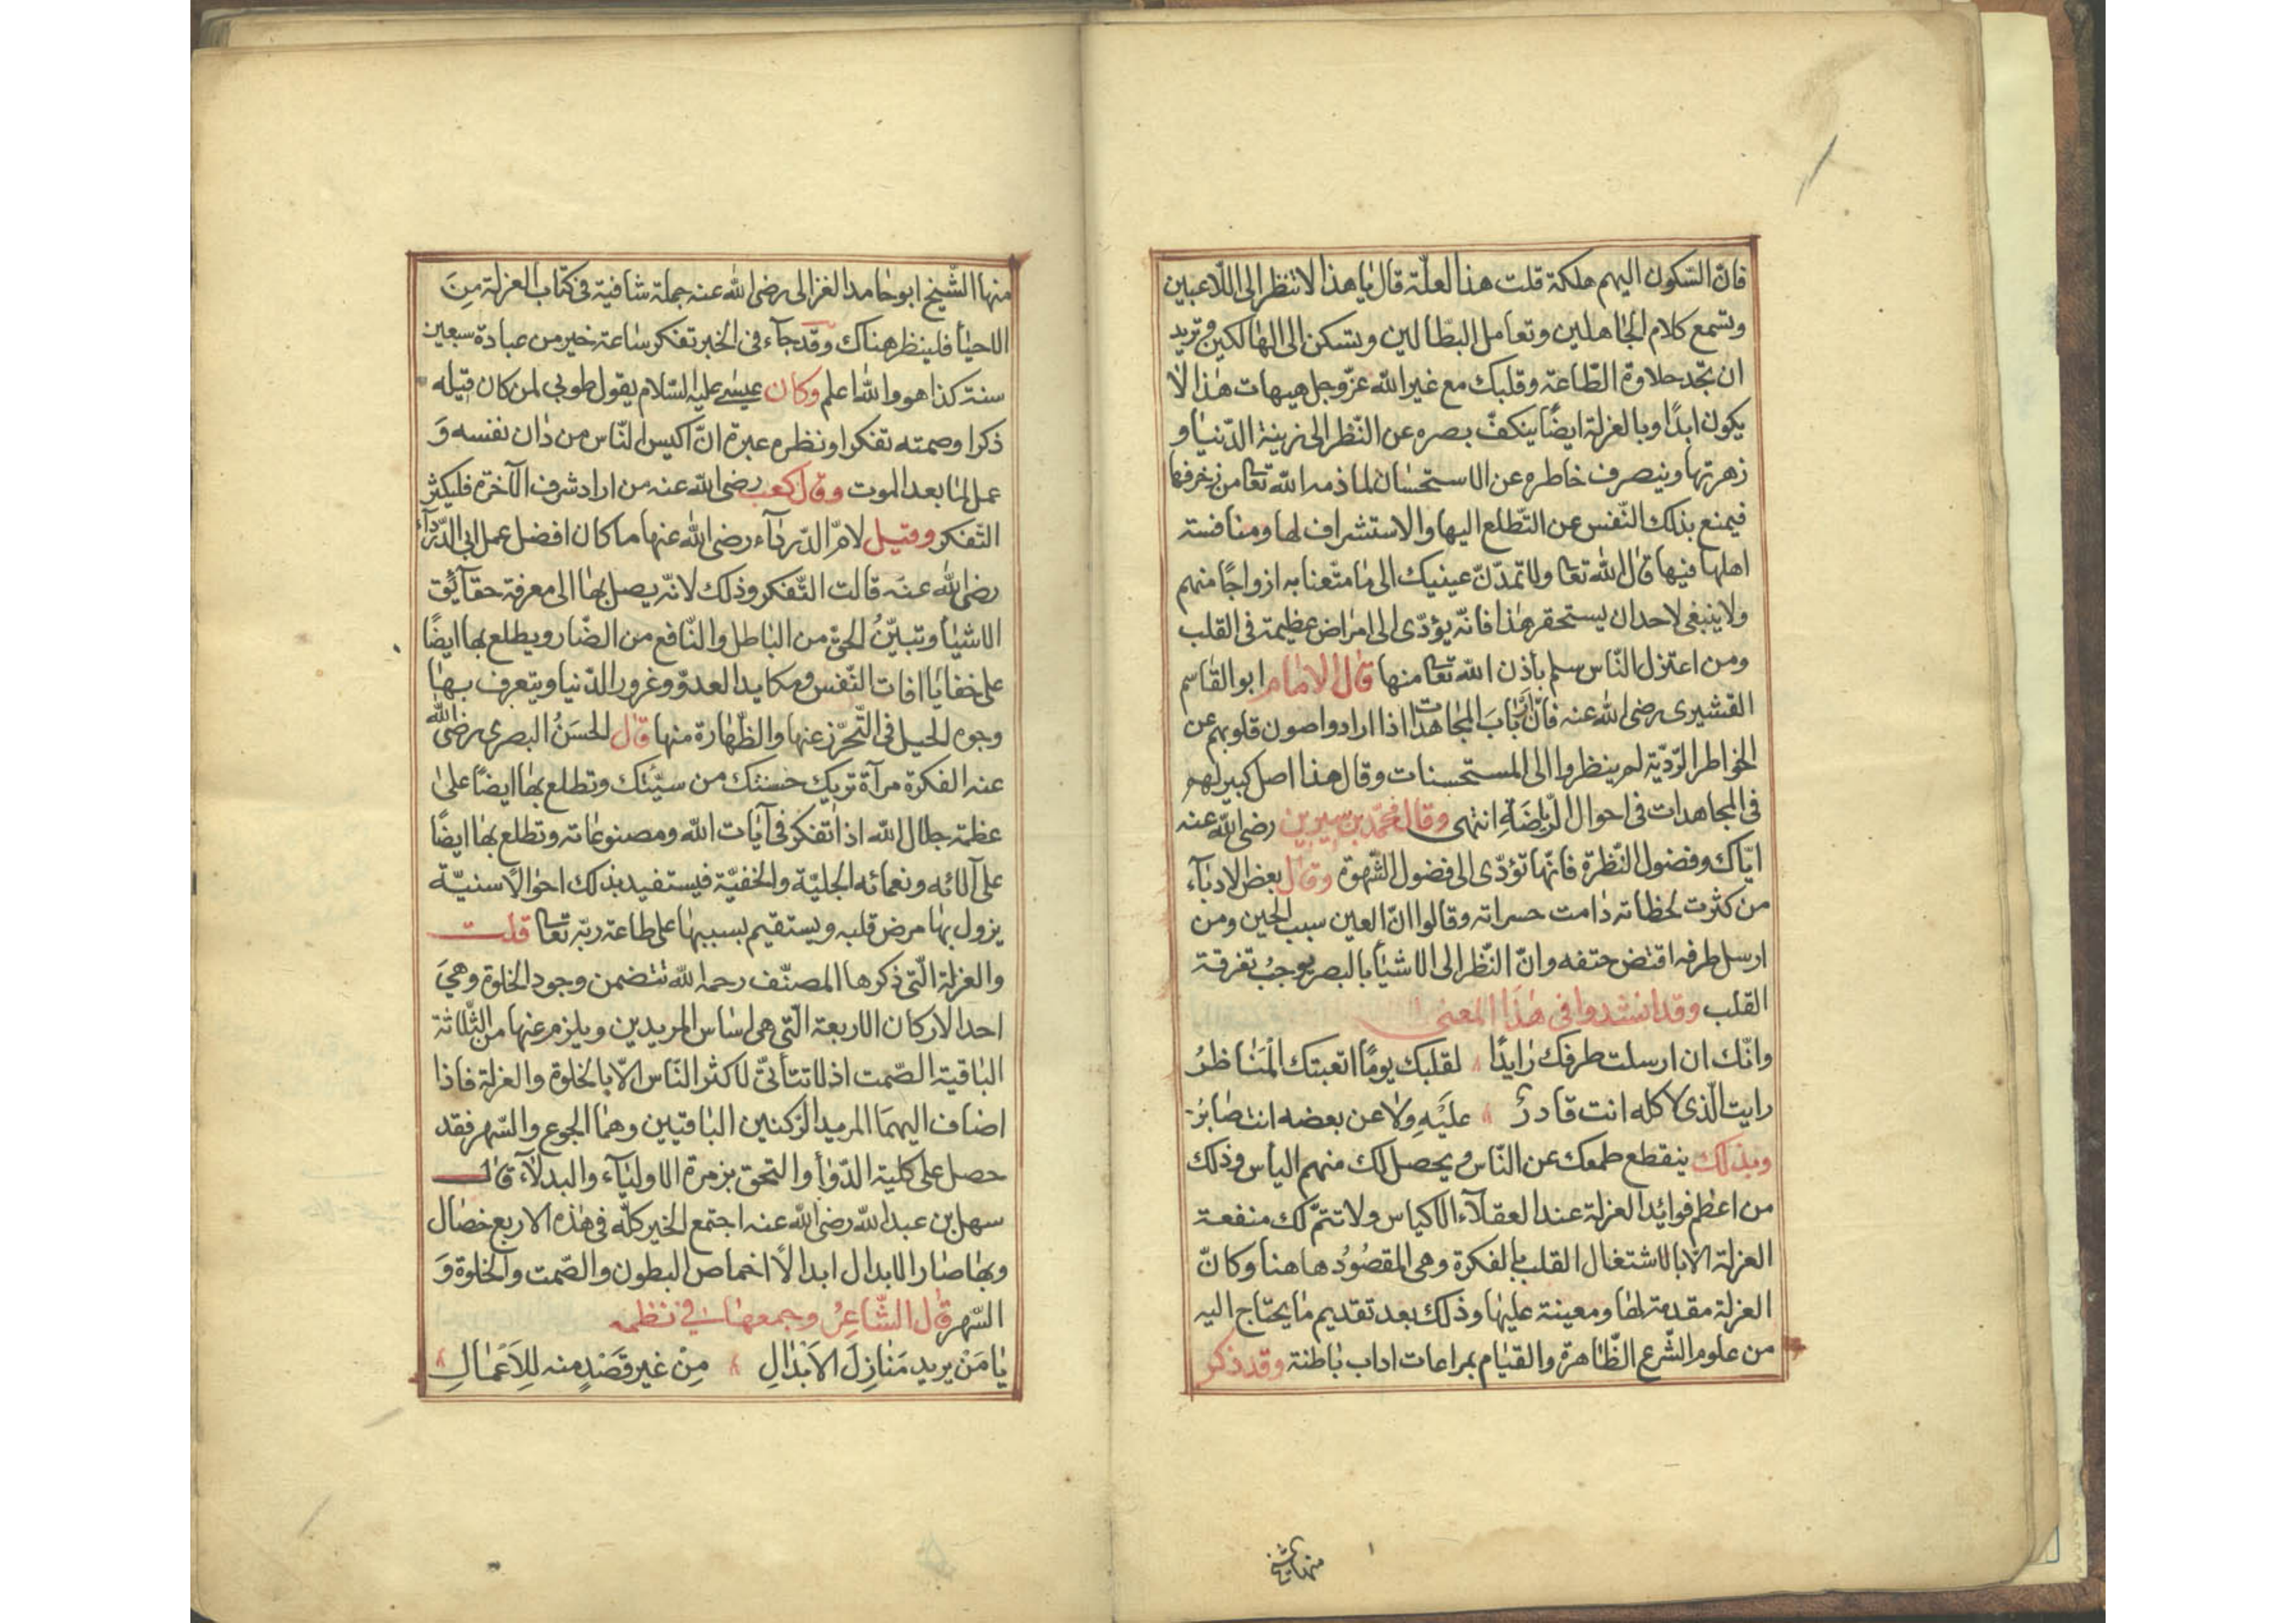 فانّ السّكون اليهم هلكة قلت هذا لعلّة قال يا هذا لا تنظر الى اللّاعبين
وتسمع كلام الجاهلين وتعامل البطّالين وتسكن الى الهالكين وتريد
ان تجد حلاوة الطّاعة وقلبك مع غير الله عزّ وجل هيهات هذا لا
يكون ابدًا وبالعزلة ايضًا ينكفّ بصره عن النّظر الى زينة الدّنيا و
زهرتها وينصرف خاطره عن الاستحسان لما ذمه الله تعا من زخرفها
فيمنع بذلك النّفس عن التّطلع اليها والاستشراف لها ومنافسة
اهلها فيها قال الله تعا ولا تمدّنّ عينيك الى ما متّعنا به ازواجًا منهم
ولا ينبغى لاحد ان يستحقر هذا فانّه يؤدّى الى امراض عظيمة فى القلب
ومن اعتزل النّاس سلم بأذن الله تعا منها قال الامام ابو القاسم
القشيرى رضى الله عنه فانّ ارباب المجاهدات اذا ارادوا صون قلوبهم عن
الخواطر الرّديّة لم ينظروا الى المستحسنات وقال هذا اصل كبير لهم
فى المجاهدات فى احوال الرّياضَةِ انتهى وقال محمّد بن سيرين رضى الله عنه
ايّاك وفضول النّظرة فانّها تؤدّى الى فضول الشّهوة وقال بعض الادباء
من كثرت لحظاته دامت حسراته وقالوا انّ العين سبب الحين ومن
ارسل طرفه اقتضٰ حتفه وانّ النّظر الى الاشيأ بالبصر يوجبُ تفرقة
القلب وقد انشدوا فى هذا المعنى
وانّك ان ارسلت طرفك رايدًا لقلبك يومًا اتعبتك الْمَنَاظرُ
رايت الّذى لا كله انت قادرٌ عليَهِ ولا عن بعضه انت صابرُ
وبذلك ينقطع طمعك عن النّاس ويحصل لك منهم اليأس وذلك
من اعظم فوائد العزلة عند العقلآء الاكياس ولا تتمّ لك منفعة
العزلة الّا بالاشتغال القلب بالفكرة وهى المقصُودُ هاهنا وكانّ
العزلة مقدمة لها ومعينة عليها وذلك بعد تقديم ما يحتاج اليه
من علوم الشّرع الظّاهرة والقيام بمراعات اداب باطنة وقد ذكر
منها الشيخ
منها الشّيخ ابو حامد الغزالى رضى الله عنه جملة شافية فى كتاب العزلة مِنَ
الاحيأ فلينظر هناك وقد جآء فى الخبر تفكر ساعة خير من عبادة سبعين
سنة كذا هو والله اعلم وكان عيسى عليه السّلام يقول طوبى لمن كان قيله
ذكرا وصمته تفكرا ونظره عبرة انّ اكيس النّاس من دان نفسه وَ
عمل لما بعد الموت وقال كعب رضى الله عنه من اراد شرف الآخرة فليكثر
التّفكر وقيل لامّ الدّرداء رضى الله عنها ما كان افضل عمل ابى الدّرداء
رضى الله عنه قالت التّفكر وذلك لانّه يصل بها الى معرفة حقآئق
الاشيأ وتبيّنُ الحق من الباطل والنّافع من الضّار ويطلع بها ايضًا
على خفايا افات النّفس ومكايد العدوّ وغرور الدّنيا ويتعرف بها
وجوه الحيل فى التّحرّز عنها والطّهارة منها قال الحسَنُ البصرى رضى الله
عنه الفكرة مرآة تريك حسنتك من سيّئتك وتطلع بها ايضًا على
عظمة جلال الله اذا تفكر فى آيات الله ومصنوعاته وتطلع بها ايضًا
على آلائه ونعمائه الجليّة والخفيّة فيستفيد بذلك احوالًا سنيّة
يزول بها مرض قلبه ويستقيم بسببها على طاعة ربّه تعا قلت
والعزلة الّتى ذكرها المصنّف رحمه الله تتضمن وجود الخلوة وهىَ
احد الاركان الاربعة الّتى هى اساس المريدين ويلزم عنها من الثّلاثة
الباقية الصّمت اذ لا تتأتىّ لاكثر النّاس الّا بالخلوة والعزلة فاذا
اضاف اليهما المريد الرّكنين الباقيين وهما الجوع والسّهر فقد
حصل على كلية الدّوأ والتحق بزمرة الاوليآء والبدلآء قال
سهل بن عبد الله رضى الله عنه اجتمع الخير كلّه فى هذه الاربع خصال
وبها صار الابدال ابدالًا اخماص البطون والصّمت والخلوة وَ
السّهر قال الشّاعِرُ وجمعها فى نظمه
يا مَنْ يريد مَنازِلَ الاَبْدالِ مِنْ غير قَصْدٍ منه لِلاَعْمالِ